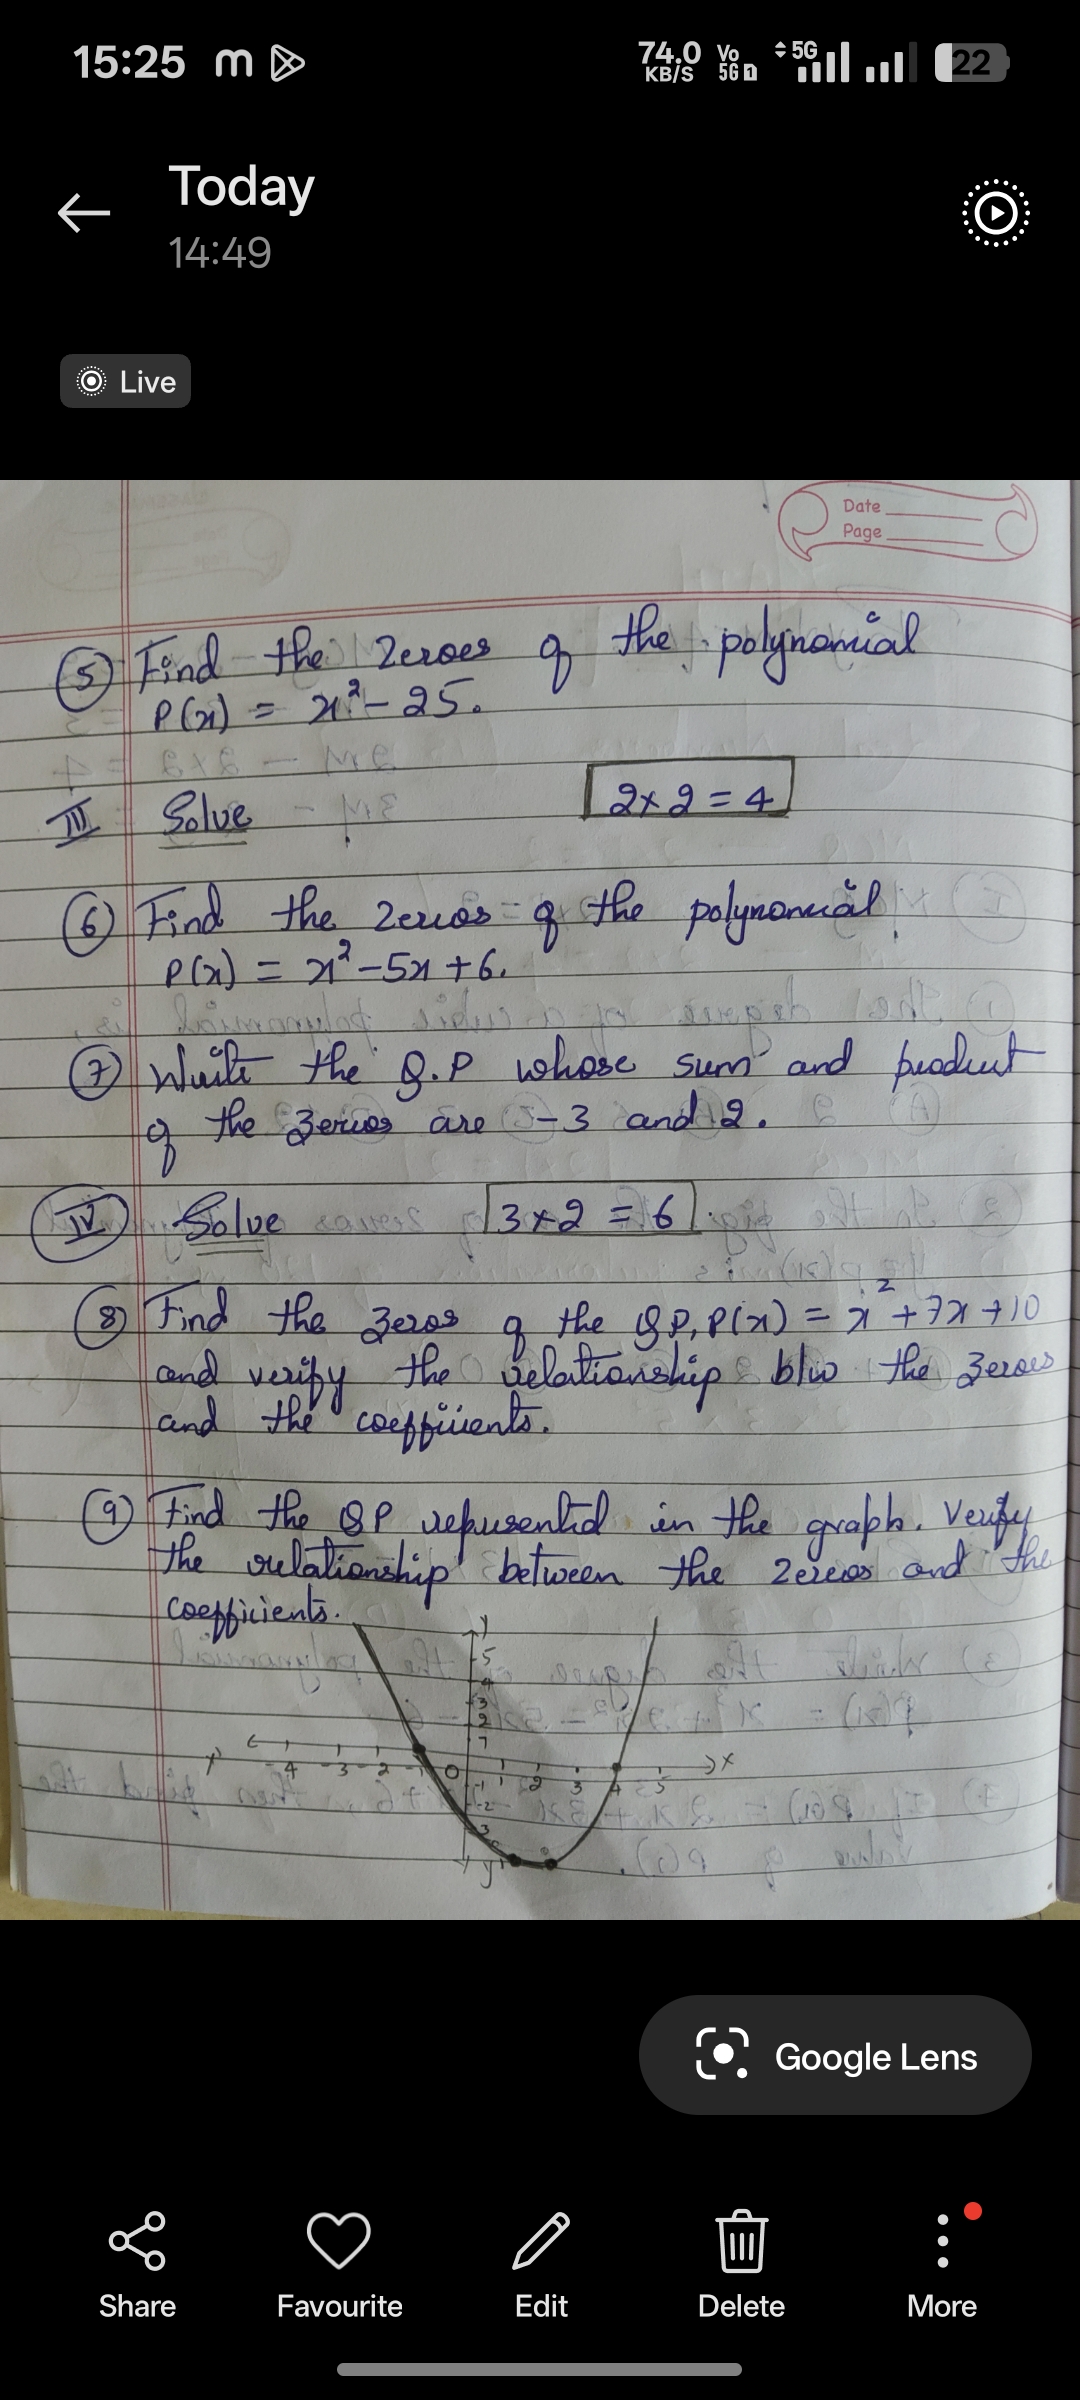 15:25 m
74.0 KB/S Vo 5G 1 5G 22
Today
14:49
Live
Date
Page
5 Find the Zeroes of the polynomial
P(x) = x² - 25.
III Solve 2×2 = 4
6 Find the Zeroes of the polynomial
P(x) = x² - 5x + 6.
7 Write the Q.P whose sum and product
of the Zeroes are -3 and 2.
IV Solve 3×2 = 6
8 Find the Zeros of the QP, P(x) = x² + 7x + 10
and verify the relationship b/w the Zeroes
and the coefficients.
9 Find the QP represented in the graph. Verify
the relationship between the Zeroes and the
coefficients.
y
5
4
3
2
1
x' -4 -3 -2 -1 0 1 2 3 4 5 x
-1
-2
3
y'
Google Lens
Share Favourite Edit Delete More